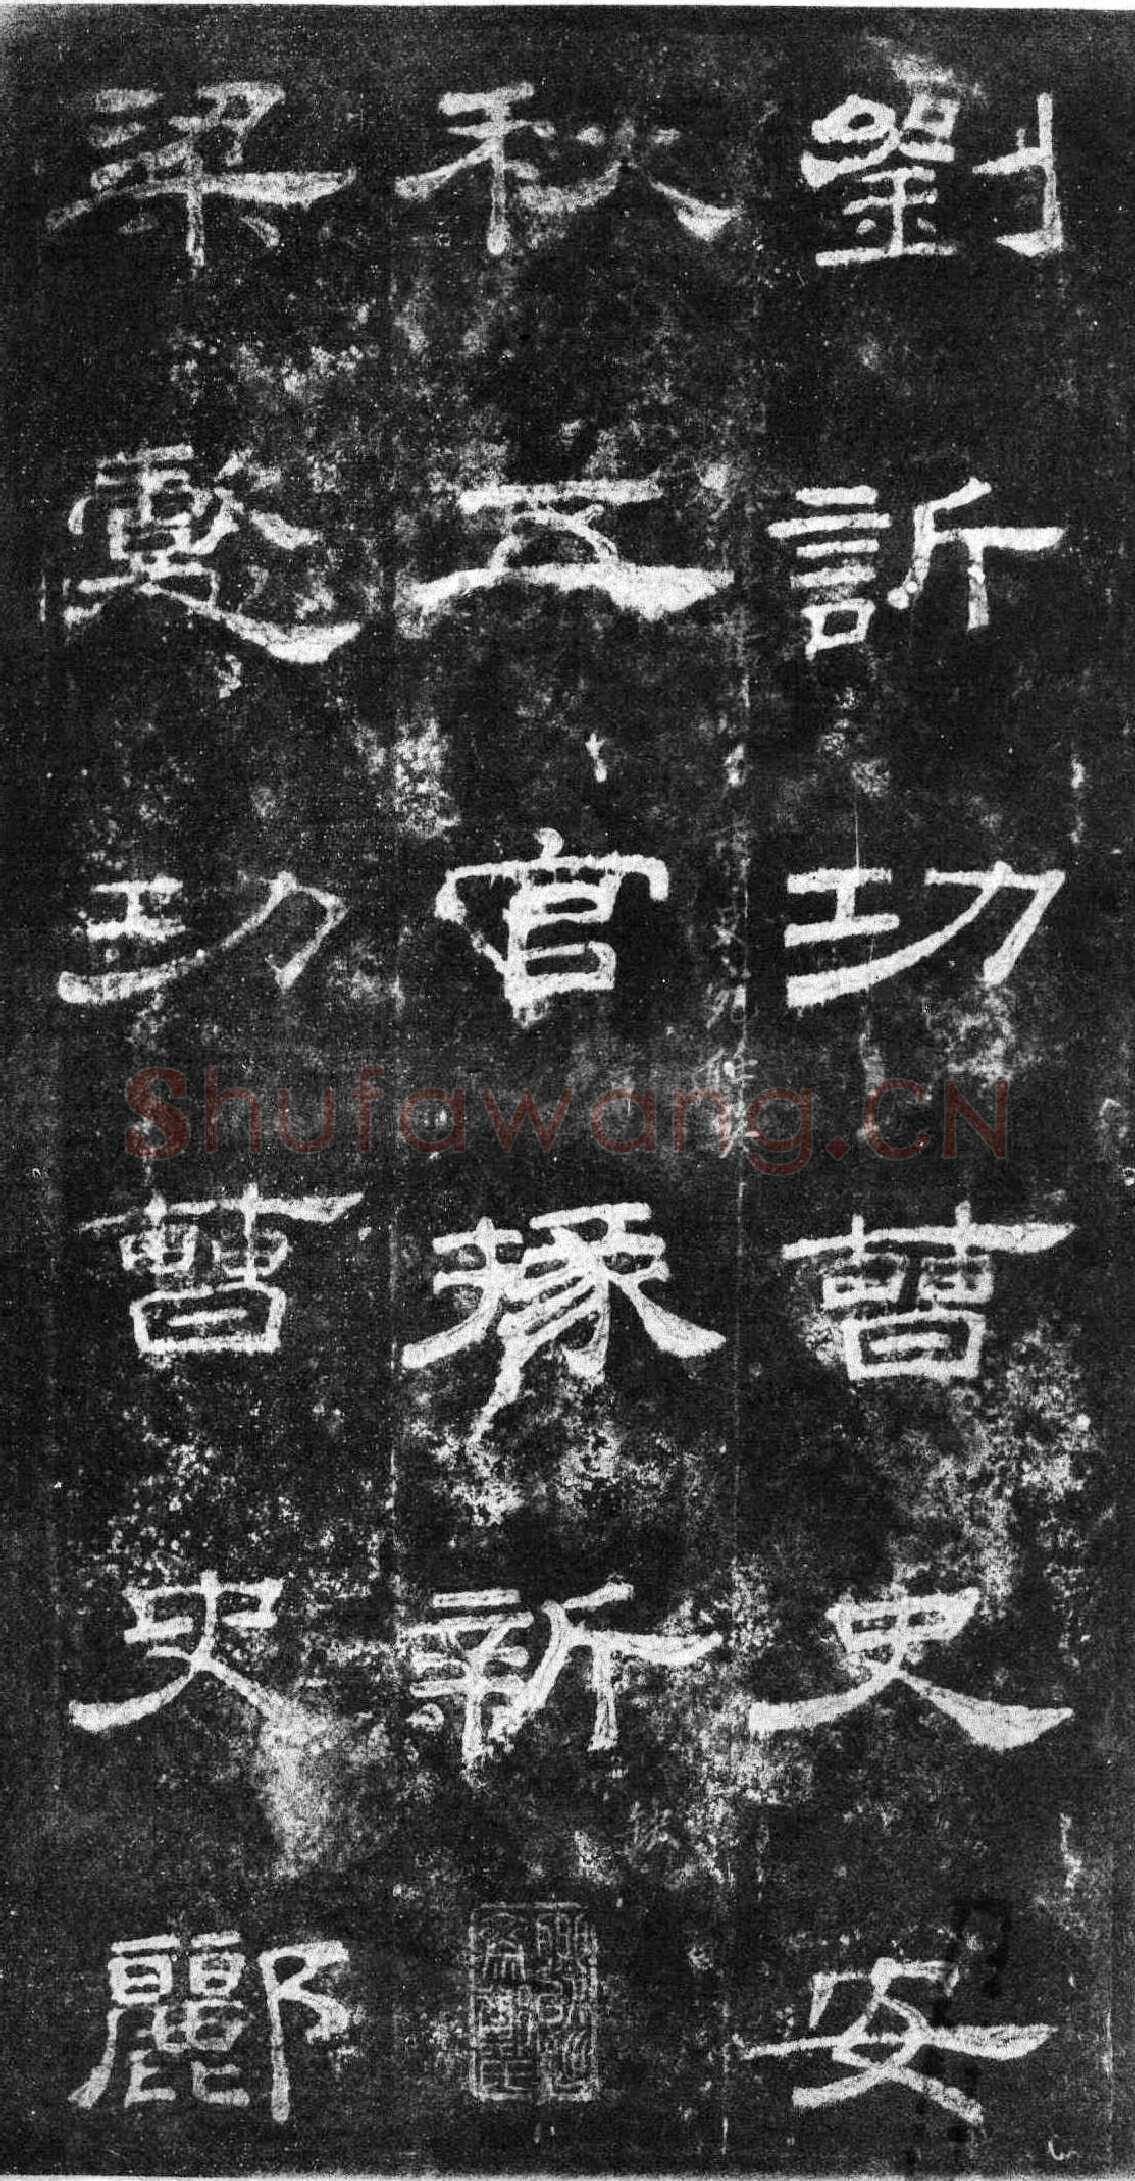 劉訢功曹史安
秋五官掾新
梁懿功曹史酈
Shufawang.CN